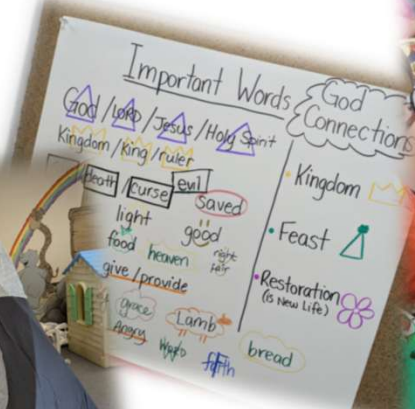 Important Words
God / LORD / Jesus / Holy Spirit
Kingdom / king / ruler
death / curse evil
saved
light good
food heaven right
fair
give / provide
grace Lamb
Angry Words faith bread
God
Connections
• Kingdom
• Feast
• Restoration
(is New Life)